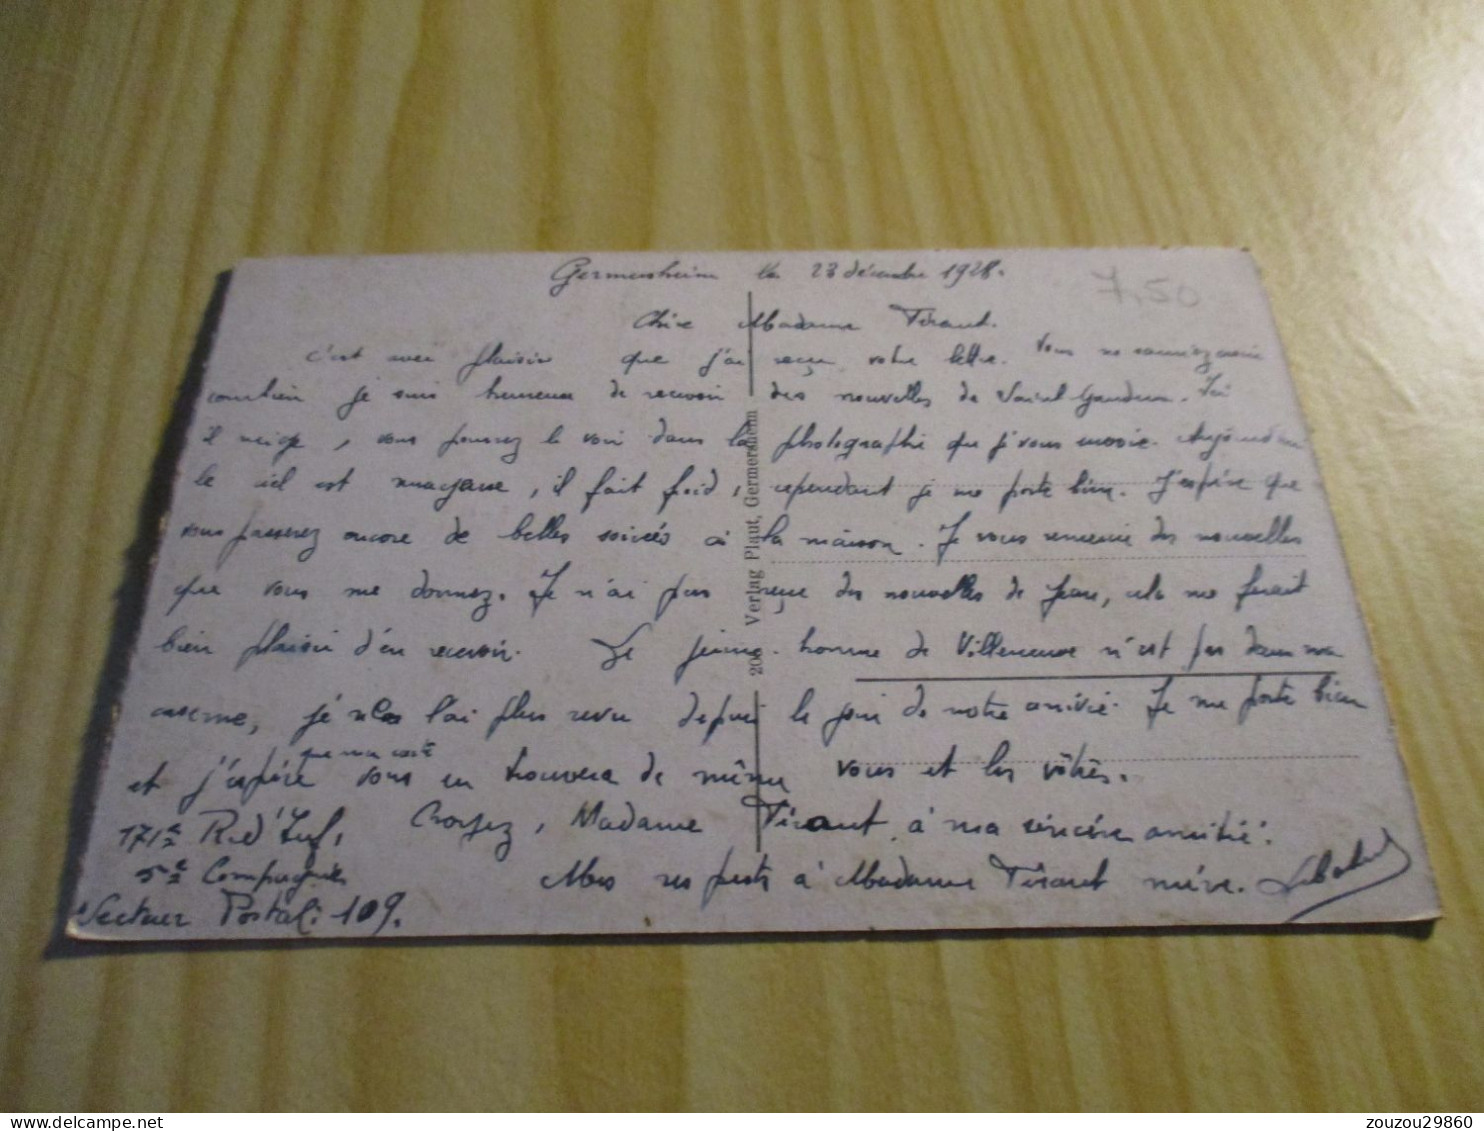 Germersheim le 23 décembre 1928.
7,50
Chère Madame Tiraut.
C'est avec plaisir que j'ai reçu votre lettre. Vous ne sauriez croire
combien je suis heureux de recevoir des nouvelles de Saint Gaudens. Ici
il neige, vous pourrez le voir dans la photographie que j'vous envoie. Aujourd'hui
le ciel est nuageux, il fait froid, cependant je me porte bien. J'espère que
vous passerez encore de belles soirées à la maison. Je vous remercie des nouvelles
que vous me donnez. Je n'ai pas reçu des nouvelles de Jean, cela me ferait
bien plaisir d'en recevoir. Le jeune homme de Villeneuve n'est pas dans ma
caserne, je ne l'ai plus revu depuis le jour de notre arrivée. Je me porte bien
et j'espère que ma carte vous en trouvera de même vous et les vôtres.
Croyez, Madame Tiraut à ma sincère amitié.
Mes respects à Madame Tiraut mère.
171e R. d'Inf.
5e Compagnie
Secteur Postal: 109.
206 Verlag Plaut, Germersheim
zouzou29860